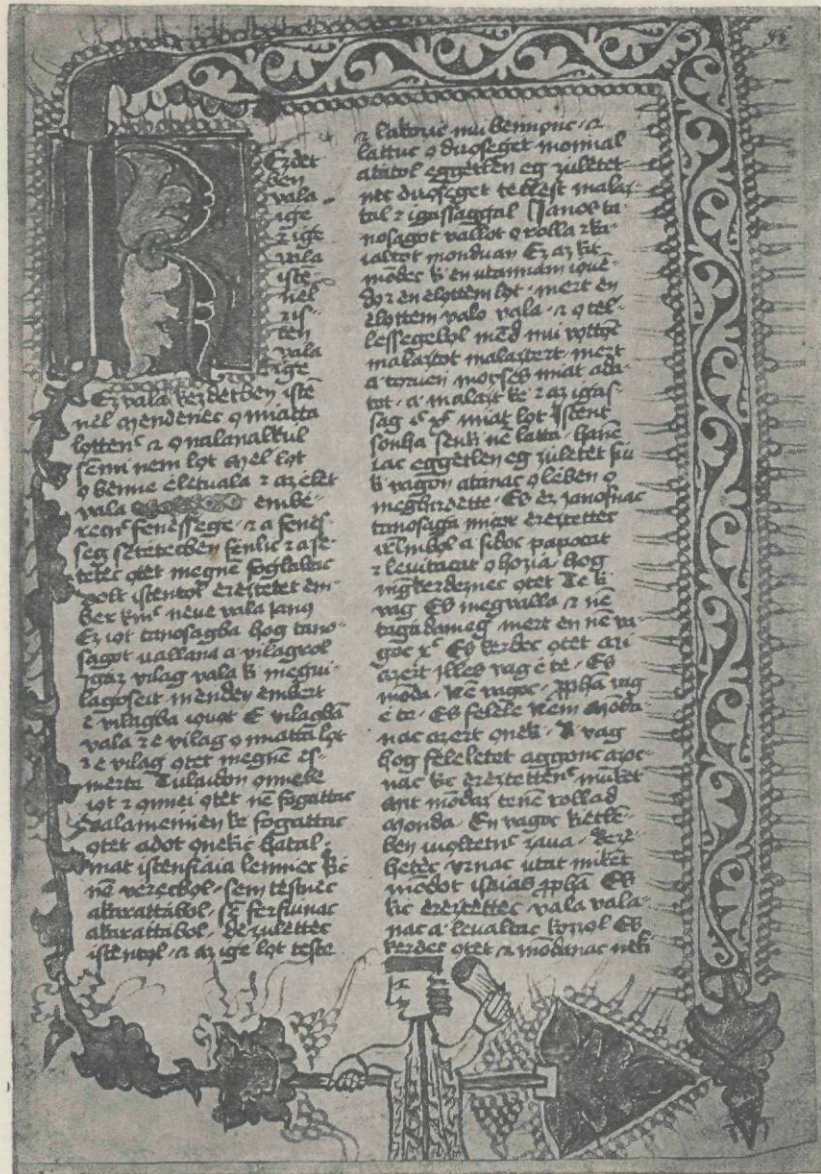 K
ezdet
ben
vala
ige
⁊ ige
vala
iste
nèl
⁊ is
ten
vala
ige
Ez vala kezdetben istē
nel Mendenec o miatta
lottenc ⁊ o nalanalkul
sēmi nem lot Mel lot
o benne eletuala ⁊ az elet
vala embe
recnc fenessege ⁊ a fenes
seg setetecben fenlic ⁊ a se
tetec otet megnē foglaltac
volt istentol ereztetet em
ber kinc neue vala janos
Ez iot tanosagba hog tano
sagot vallana a vilagrol
igaz vilag vala ki megui
lagoseit menden embert
e vilagba iouot E vilagbā
vala ⁊ e vilag o miatta lot
⁊ e vilag otet megnē es
merte Tulaidon
iot ⁊ otet nē fogattac
Valamenien ke fogattac
otet adot onekic hatal
mat istenfiaia lenniec kic
nē verecbol sem testnec
akarattabol sē ferfiunac
akarattabol de zulettec
istentol ⁊ az ige lot teste
⁊ lakozic mu bennonc ⁊
lattuc o duoseget monnal
atatol eggetlen eg zuletet
nec duoseget tellest malaz
tal ⁊ igassaggal Janos ta
nosagot vallot o rolla ⁊ ka
ialtot monduan Ez az kit
mōdec ki en utannam iouē
do ⁊ en elottem lot mert en
elottem valo vala ⁊ o tel
lessegebol mēd mui vottōc
malaztot malaztert mert
a toruen moyses miat ada
tot a malazt ke ⁊ az igas
sag ic xc miat lot Istent
sonha senki nē latta hanē
iac eggetlen eg zuletet fiu
ki vagon atanac o leben o
meghirdette Es ez janosnac
tanosaga mikor ereztettec
irlmbol a sidoc papocat
⁊ leuitacat o hozia hog
mgkerdeznec otet Te ki
vag Es megvalla ⁊ nē
tagadameg mert en nē va
goc xc Es kerdec otet Mi
azert illes vag e te Es
mōda Nē vagoc propha vag
e te Es felele Nem Mōda
nac azert onek Ki vag
hog feleletot aggonc azoc
nac kic ereztettenc mūket
Mit mōdaz tenē rollad
Monda En vagoc kietlē
ben iuoltenc zaua Kere
hetec vrnac utat mikēt
mōdot isaias propha Es
kic ereztettec vala vala
nac a leualtac kozol Es
kerdec otet ⁊ mōdanac neki